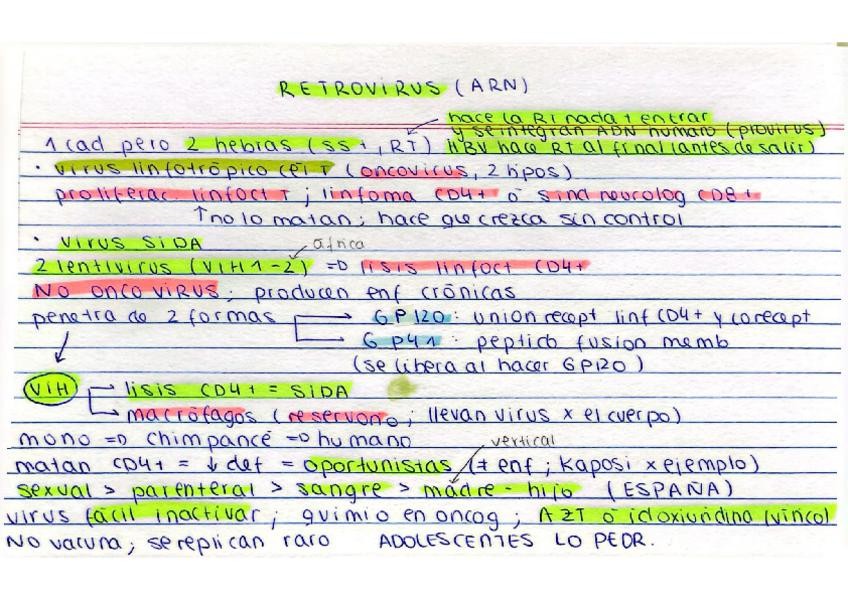 RETROVIRUS (ARN)
hace la RT nada + entrar
y se integran ADN humano (provirus)
1 cad pero 2 hebras (ss+, RT) HBV hace RT al final (antes de salir)
· virus linfotrópico cél T (oncovirus, 2 tipos)
proliferac. linfoct T; linfoma CD4+ ó sind neurolog CD8+
↑ no lo matan; hace que crezca sin control
· VIRUS SIDA
africa
2 lentivirus (VIH 1-2) => lisis linfoct CD4+
NO oncovirus; producen enf crónicas
penetra de 2 formas → GP120: union recept linf CD4+ y corecept
→ GP41: peptido fusion memb
(se libera al hacer GP120)
VIH → lisis CD4+ = SIDA
→ macrófagos (reservorio; llevan virus x el cuerpo)
mono => chimpancé => humano
vertical
matan CD4+ = ↓ def = oportunistas (+ enf; Kaposi x ejemplo)
sexual > parenteral > sangre > madre - hijo (ESPAÑA)
virus fácil inactivar; quimio en oncog; AZT ó idoxiuridina (vírico)
NO vacuna; se replican raro ADOLESCENTES LO PEOR.